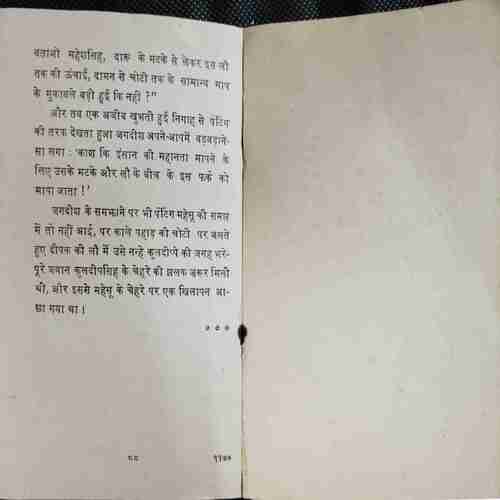 बताओ महेशसिंह, दारू के मटके से लेकर इस लौ
तक की ऊंचाई, दामन से चोटी तक के सामान्य माप
के मुकाबले बड़ी हुई कि नहीं ?”
और तब एक अजीब खुभती हुई निगाह से पेंटिंग
की तरफ देखता हुआ जगदीश अपने-आपमें बड़बड़ाने-
सा लगा : ‘काश कि इंसान की महानता मापने के
लिए उसके मटके और लौ के बीच के इस फर्क को
मापा जाता !’
जगदीश के समझाने पर भी पेंटिंग महेसू की समझ
में तो नहीं आई, पर काले पहाड़ की चोटी पर जलते
हुए दीपक की लौ में उसे नन्हे कुलदीप्पे की जगह भर-
पूरे जवान कुलदीपसिंह के चेहरे की झलक जरूर मिली
थी, और इससे महेसू के चेहरे पर एक खिलापन आ-
छा गया था ।
० ० ०
११७०